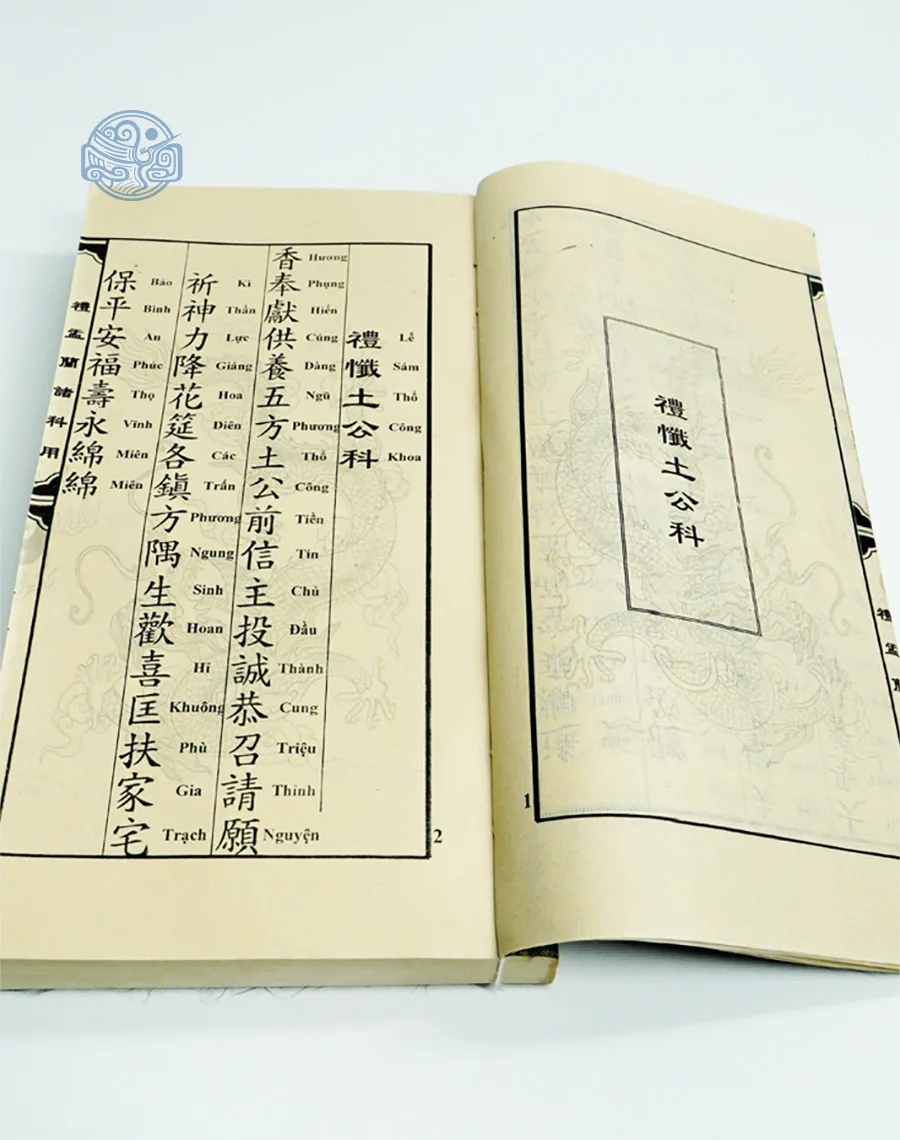 禮懺土公科
1
禮盂蘭
禮懺土公科
Lễ Sám Thổ Công Khoa
香奉獻供養五方土公前信主投誠恭召請願
Hương Phụng Hiến Cúng Dàng Ngũ Phương Thổ Công Tiền Tín Chủ Đầu Thành Cung Triệu Thỉnh Nguyện
祈神力降花筵各鎮方隅生歡喜匡扶家宅
Kì Thần Lực Giáng Hoa Diên Các Trấn Phương Ngung Sinh Hoan Hĩ Khuông Phù Gia Trạch
保平安福壽永綿綿
Bảo Bình An Phúc Thọ Vĩnh Miên Miên
禮盂蘭諸科用
2